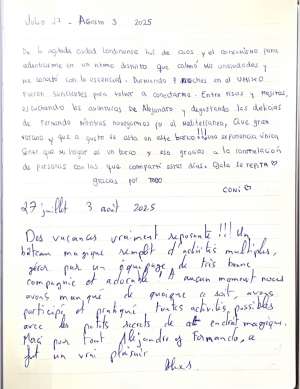 Julio 27 - Agosto 3 2025
De la agitada ciudad londinense hui de caos y el consumismo para
adentrarme en un ritmo distinto que calmó mis ansiedades y
me conectó con lo esencial. Durmiendo 7 noches en el
fueron suficientes para volver a conectarme. Entre risas y mojitos,
escuchando las aventuras de Alejandro y degustando las delicias
de Fernando Nosotros navegamos por el Mediterráneo, Que gran
verano y que a gusto se esta en este barco!!! Una experiencia única
Creer que mi hogar es un barco y eso gracias a la constelación
de personas con las que compartí estos días. Ojalá se repita ♡
gracias por todo
CONI ♡
27 juillet 3 août 2025
Des vacances vraiment reposante !!! Un
bâteau magique remplit d'activités multiples,
gérer par un équipage de très bonne
compagnie et adorable ! A aucun moment nous
avons manqué de quoique ce soit, avons
participé et pratiqué toutes activités possibles
avec les petits secrets de endroit magique.
Merci pour tout Alejandro y Fernando, ce
fut un vrai plaisir